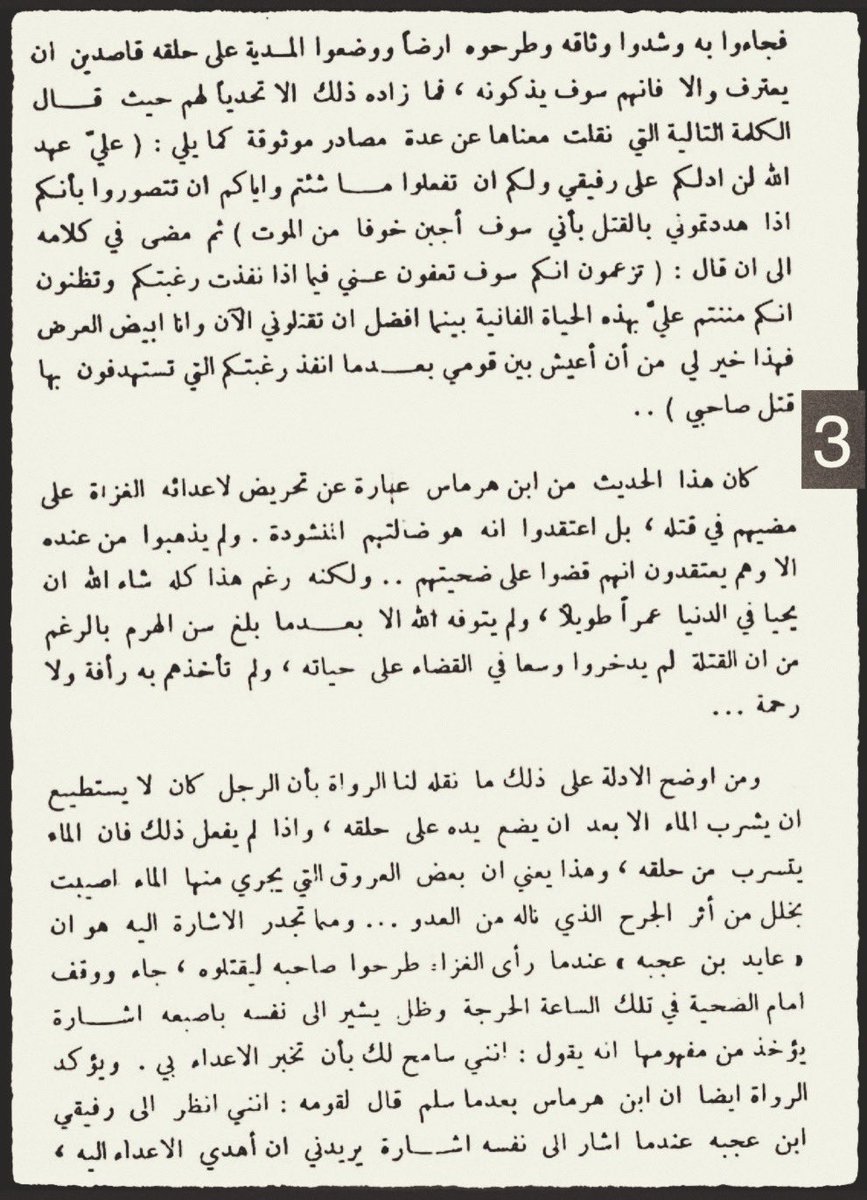 فجاءوا به وشدوا وثاقه وطرحوه ارضاً ووضعوا المدية على حلقه قاصدين ان
يعترف والا فانهم سوف يذكونه ، فما زاده ذلك الا تحدياً لهم حيث قال
الكلمة التالية التي نقلت معناها عن عدة مصادر موثوقة كما يلي : ( عليّ عهد
الله لن ادلكم على رفيقي ولكم ان تفعلوا ما شئتم واياكم ان تتصوروا بأنكم
اذا هددتموني بالقتل بأني سوف أجبن خوفا من الموت ) ثم مضى في كلامه
الى ان قال : ( تزعمون انكم سوف تعفون عني فيما اذا نفذت رغبتكم وتظنون
انكم مننتم عليّ بهذه الحياة الفانية بينما افضل ان تقتلوني الآن وانا ابيض العرض
فهذا خير لي من أن أعيش بين قومي بعدما انفذ رغبتكم التي تستهدفون بها
قتل صاحبي ) ..
3
كان هذا الحديث من ابن هرماس عبارة عن تحريض لاعدائه الغزاة على
مضيهم في قتله ، بل اعتقدوا انه هو ضالتهم المنشودة . ولم يذهبوا من عنده
الا وهم يعتقدون انهم قضوا على ضحيتهم .. ولكنه رغم هذا كله شاء الله ان
يحيا في الدنيا عمراً طويلاً ، ولم يتوفه الله الا بعدما بلغ سن الهرم بالرغم
من ان القتلة لم يدخروا وسعا في القضاء على حياته ، ولم تأخذهم به رأفة ولا
رحمة ...
ومن اوضح الادلة على ذلك ما نقله لنا الرواة بأن الرجل كان لا يستطيع
ان يشرب الماء الا بعد ان يضع يده على حلقه ، واذا لم يفعل ذلك فان الماء
يتسرب من حلقه ، وهذا يعني ان بعض العروق التي يجري منها الماء اصيبت
بخلل من أثر الجرح الذي ناله من العدو ... ومما تجدر الاشارة اليه هو ان
« عايد بن عجبه » عندما رأى الغزاة طرحوا صاحبه ليقتلوه ، جاء ووقف
امام الضحية في تلك الساعة الحرجة وظل يشير الى نفسه باصبعه اشارة
يؤخذ من مفهومها انه يقول : انني سامح لك بأن تخبر الاعداء بي . ويؤكد
الرواة ايضا ان ابن هرماس بعدما سلم قال لقومه : انني انظر الى رفيقي
ابن عجبه عندما اشار الى نفسه اشارة يريدني ان أهدي الاعداء اليه ،